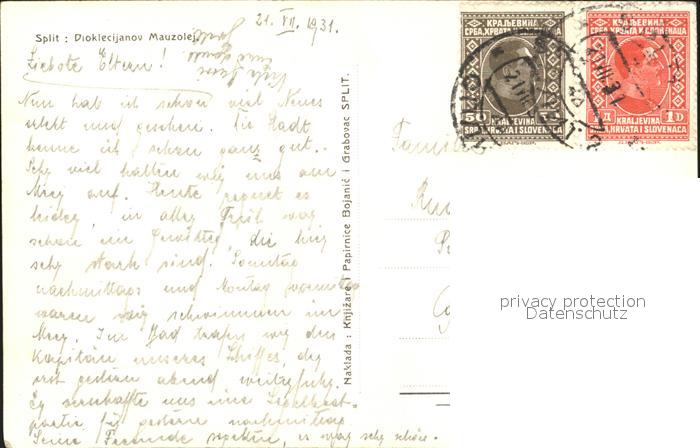 21. VII. 1931.
Split : Dioklecijanov Mauzolej
Liebste Eltern!
Nun hab ich schon viel Neues
erlebt und gesehen. Die Stadt
kenne ich schon ganz gut.
Sehr viel halten wir uns am
Meer auf. Heute regnet es
leider, in aller Früh war
schon ein Gewitter, die hier
sehr stark sind. Sonntag
nachmittags und Montag vormittag
waren wir schwimmen im
Meer. Im Bad trafen wir den
Kapitän unseres Schiffes, der
erst gestern abend weiterfuhr.
Er verschaffte uns eine Segelboot-
partie für gestern nachmittag.
Seine Freunde segelten, es war sehr schön.
Naklada : Knjižare i Papirnice Bojanić i Grabovac SPLIT.
КРАЉЕВИНА
СРБА, ХРВАТА И СЛОВЕНАЦА
50
KRALJEVINA
SRBA, HRVATA I SLOVENACA
КРАЉЕВИНА
СРБА, ХРВАТА И СЛОВЕНАЦА
1 D
KRALJEVINA
SRBA, HRVATA I SLOVENACA
Famil
privacy protection
Datenschutz